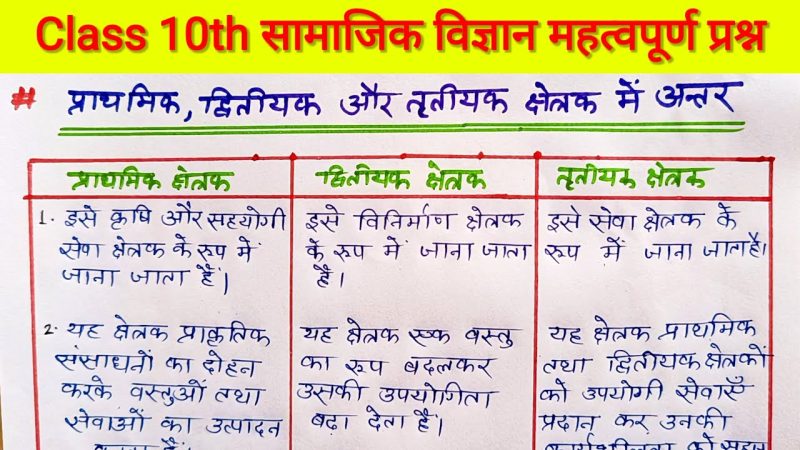 Class 10th सामाजिक विज्ञान महत्वपूर्ण प्रश्न
# प्राथमिक, द्वितीयक और तृतीयक क्षेत्रक में अन्तर
प्राथमिक क्षेत्रक
द्वितीयक क्षेत्रक
तृतीयक क्षेत्रक
1. इसे कृषि और सहयोगी
सेवा क्षेत्रक के रूप में
जाना जाता है।
इसे विनिर्माण क्षेत्रक
के रूप में जाना जाता
है।
इसे सेवा क्षेत्रक के
रूप में जाना जाता है।
2. यह क्षेत्रक प्राकृतिक
संसाधनों का दोहन
करके वस्तुओं तथा
सेवाओं का उत्पादन
यह क्षेत्रक एक वस्तु
का रूप बदलकर
उसकी उपयोगिता
बढ़ा देता है।
यह क्षेत्रक प्राथमिक
तथा द्वितीयक क्षेत्रकों
को उपयोगी सेवाएँ
प्रदान कर उनकी